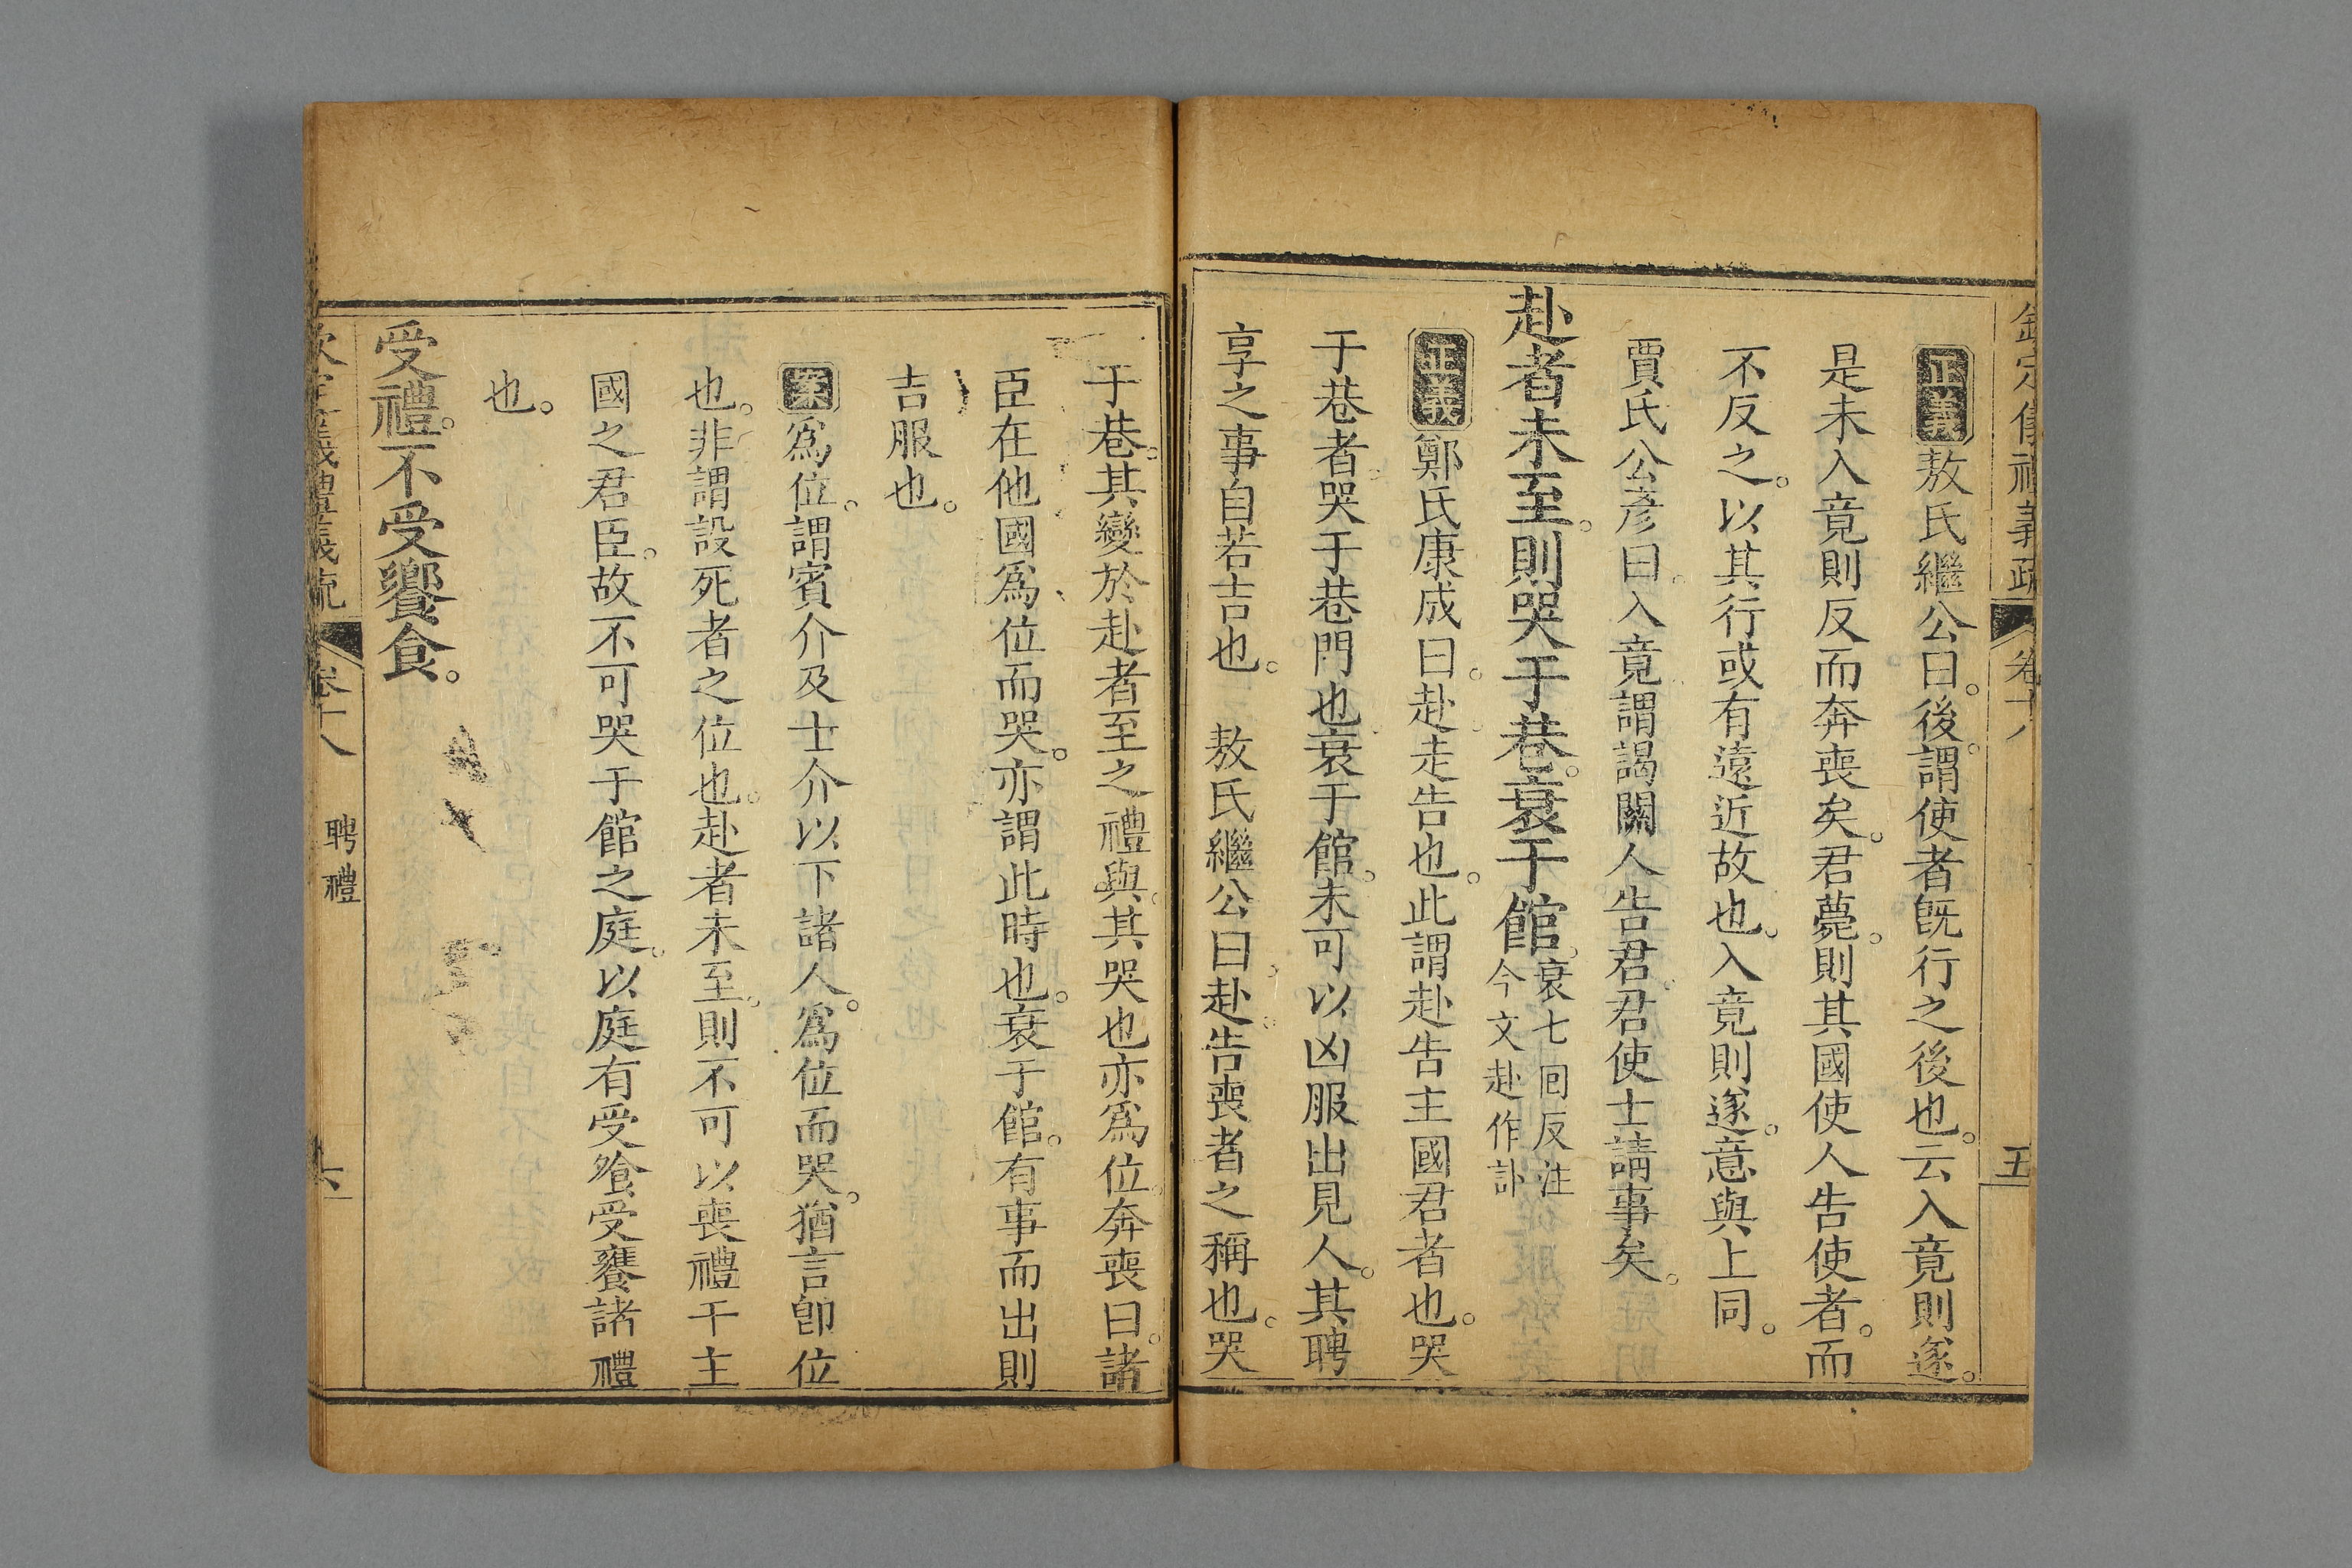 欽定儀禮義疏 卷十八 五
正義敖氏繼公曰後謂使者旣行之後也云入竟則遂
是未入竟則反而奔喪矣君薨則其國使人告使者而
不反之以其行或有遠近故也入竟則遂意與上同
賈氏公彥曰入竟謂謁關人告君君使士請事矣
赴者未至則哭于巷衰于館衰七回反注
今文赴作訃
正義鄭氏康成曰赴走告也此謂赴告主國君者也哭
于巷者哭于巷門也衰于館未可以凶服出見人其聘
享之事自若吉也 敖氏繼公曰赴告喪者之稱也哭
于巷其變於赴者至之禮與其哭也亦爲位奔喪曰諸
臣在他國爲位而哭亦謂此時也衰于館有事而出則
吉服也
案爲位謂賓介及士介以下諸人爲位而哭猶言卽位
也非謂設死者之位也赴者未至則不可以喪禮干主
國之君臣故不可哭于館之庭以庭有受飧受饔諸禮
也
受禮不受饗食
欽定儀禮義疏 卷十八 聘禮 六